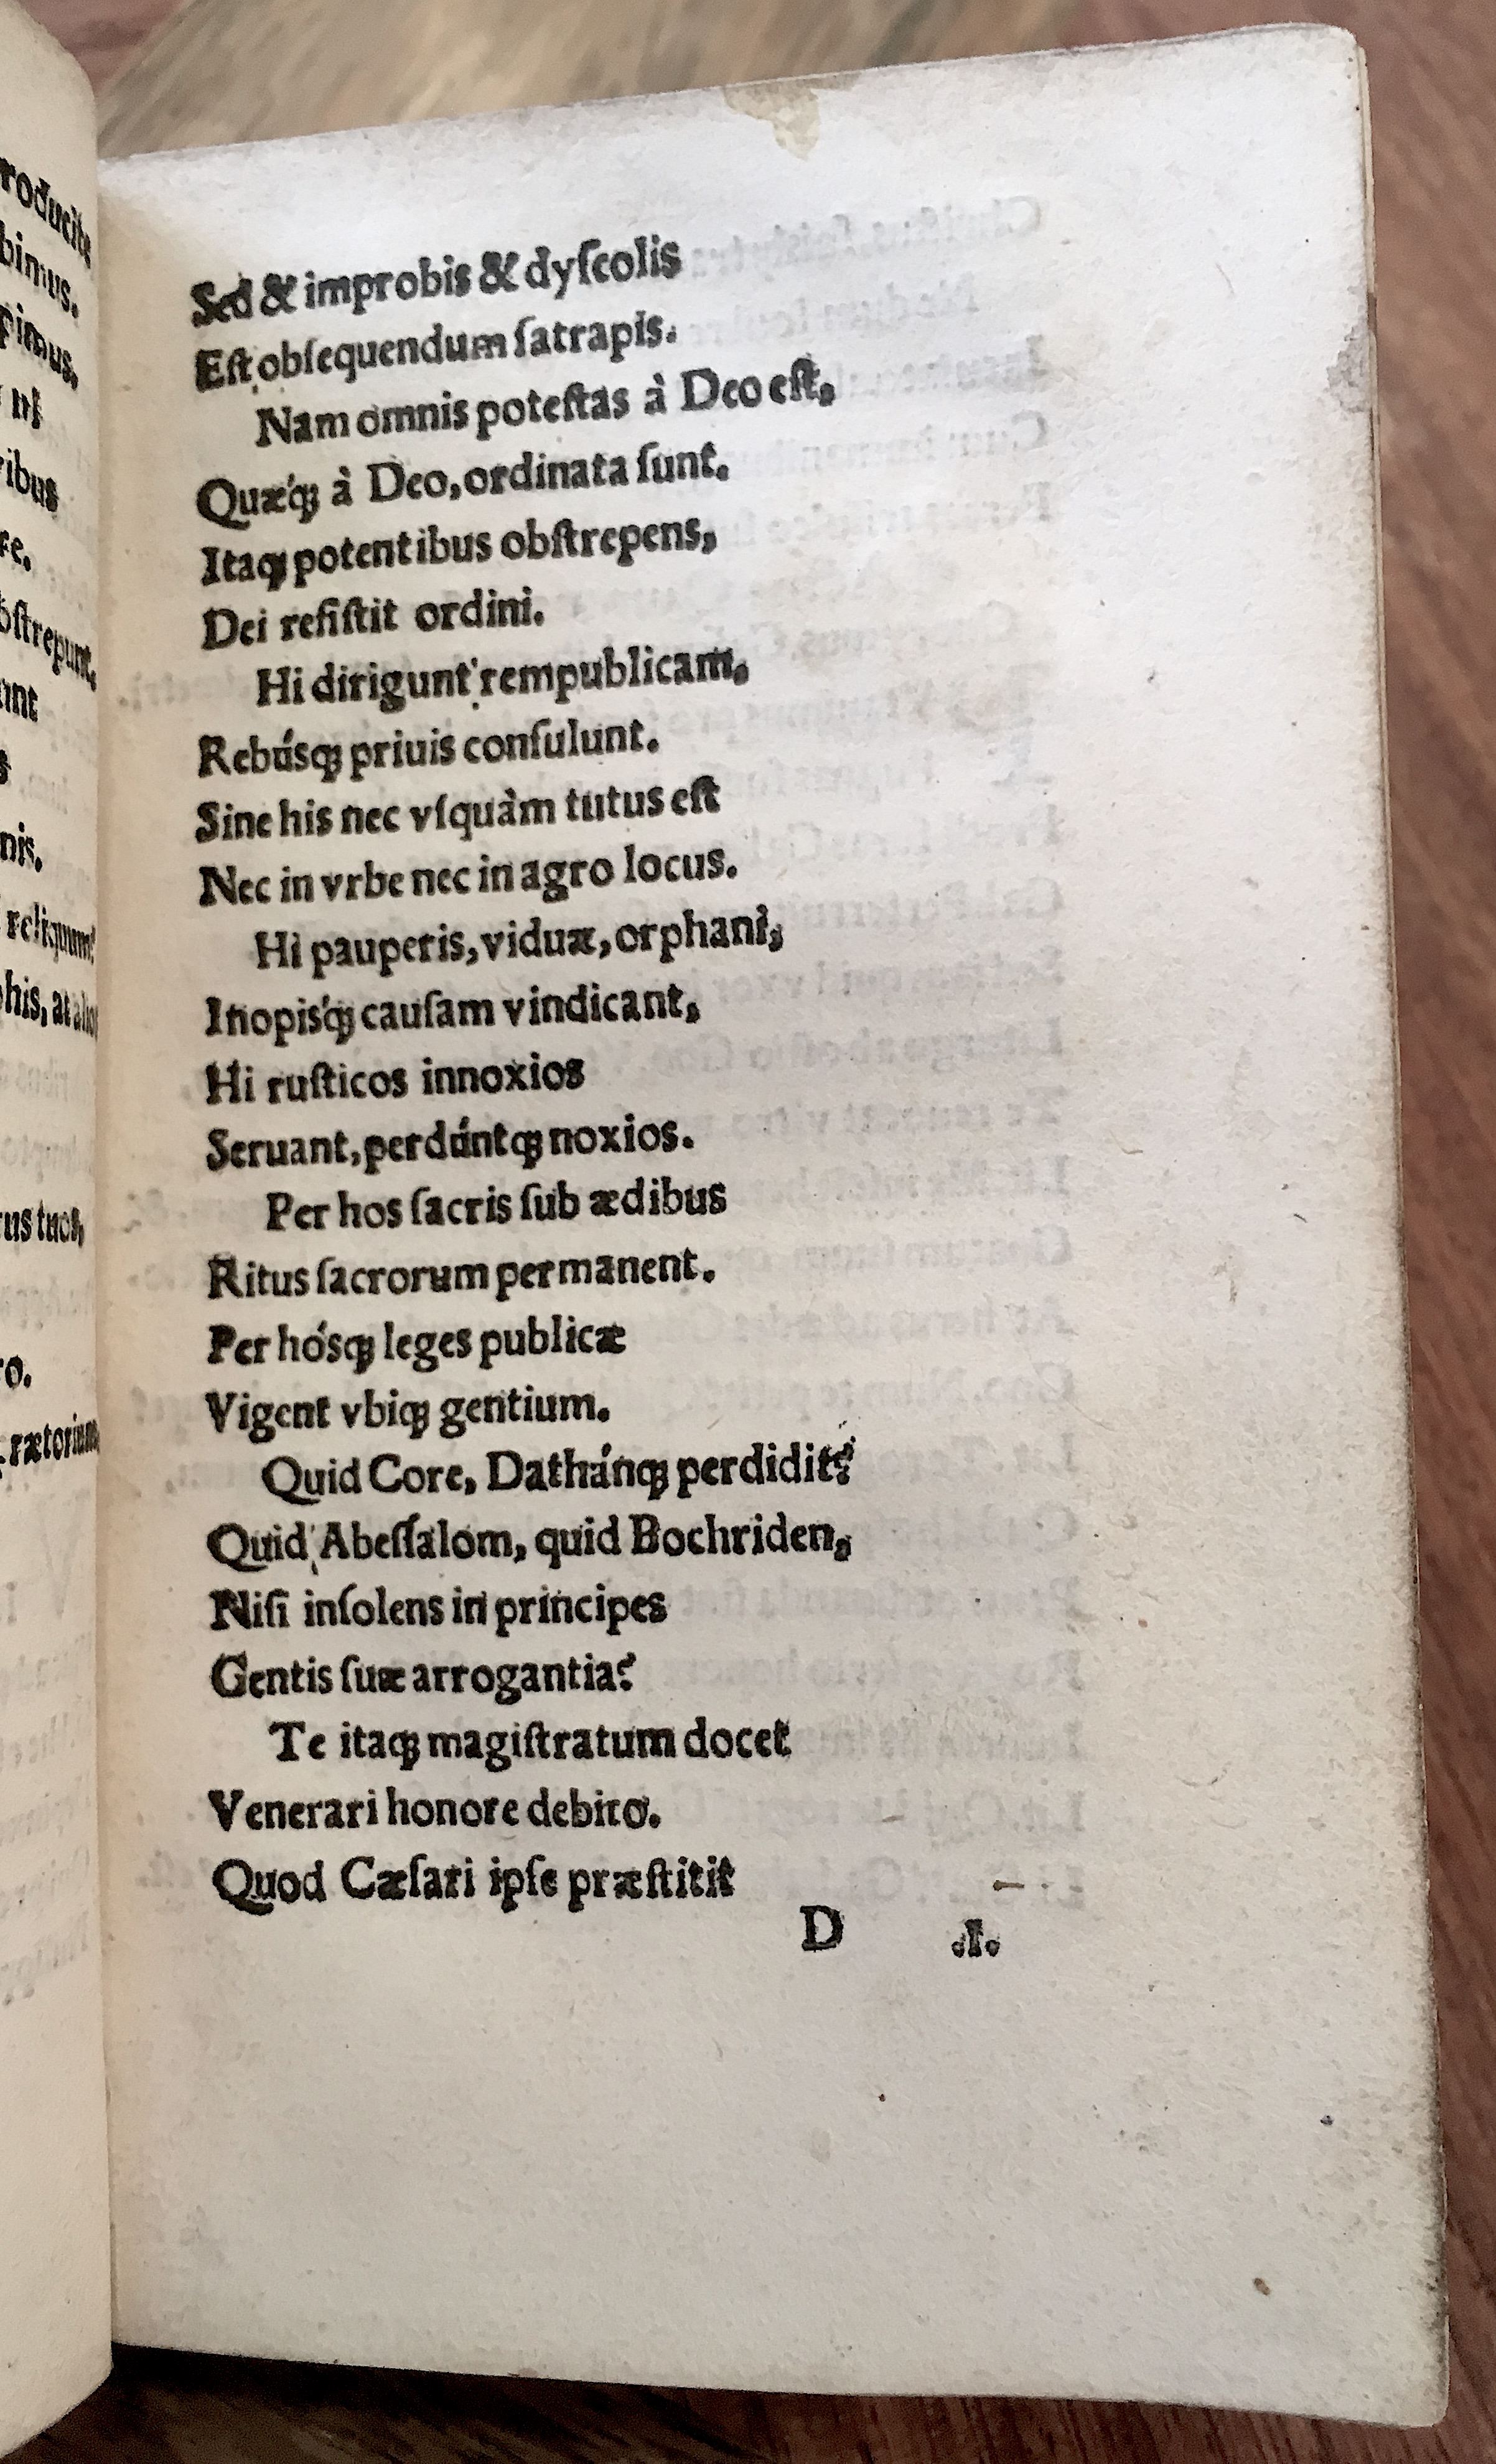 roducite
bimus.
pimus.
ni
ribus
re,
bſtrepunt.
unt
s
nis.
reliquum?
phis, at alios
rus tuos,
ro.
rætorium
Sed & improbis & dyſcolis
Eſt obſequendum ſatrapis.
Nam omnis poteſtas à Deo eſt,
Quæq́ꝫ à Deo, ordinata ſunt.
Itaqꝫ potentibus obſtrepens,
Dei reſiſtit ordini.
Hi dirigunt rempublicam,
Rebúsqꝫ priuis conſulunt.
Sine his nec vſquàm tutus eſt
Nec in vrbe nec in agro locus.
Hi pauperis, viduæ, orphani,
Inopisq́ꝫ cauſam vindicant,
Hi ruſticos innoxios
Seruant, perdúntqꝫ noxios.
Per hos ſacris ſub ædibus
Ritus ſacrorum permanent.
Per hósqꝫ leges publicæ
Vigent vbiqꝫ gentium.
Quid Core, Dathánqꝫ perdidit?
Quid Abeſſalom, quid Bochriden,
Niſi inſolens in principes
Gentis ſuæ arrogantia?
Te itaqꝫ magiſtratum docet
Venerari honore debito.
Quod Cæſari ipſe præſtitit
D .I.